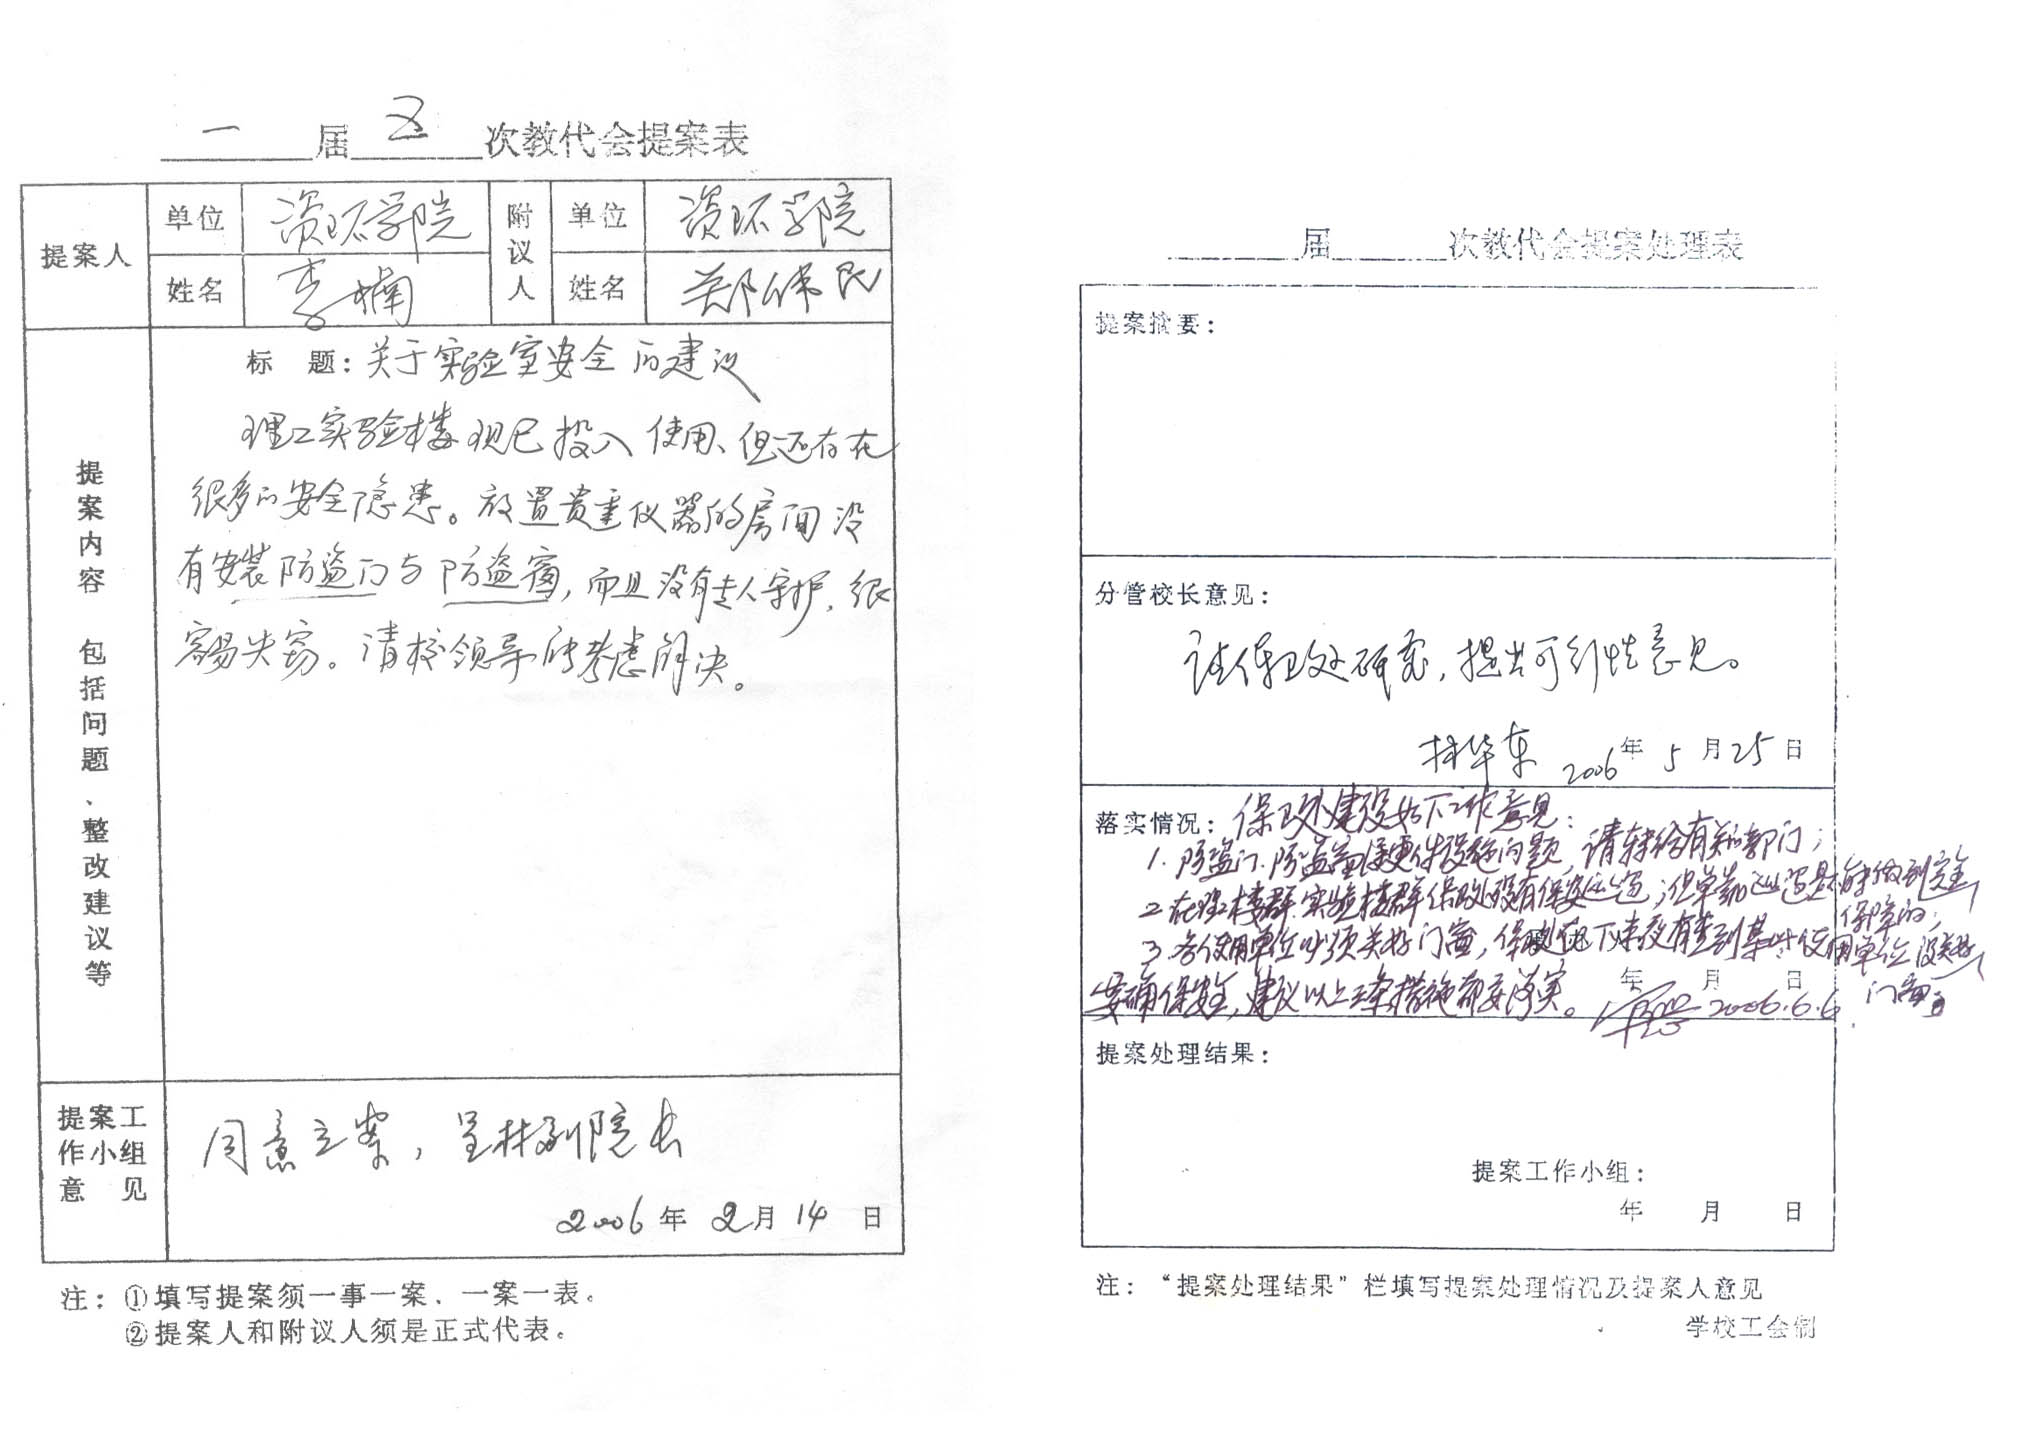 一届五次教代会提案表
提案人 单位 资环学院 附议人 单位 资环学院
姓名 李楠 姓名 郑伟民
提案内容 包括问题、整改建议等
标 题：关于实验室安全的建议
理工实验楼现已投入使用、但还存在
很多的安全隐患。放置贵重仪器的房间没
有安装防盗门与防盗窗，而且没有专人守护，很
容易失窃。请校领导能考虑解决。
提案工作小组意见
同意立案，呈林副院长
2006年2月14日
注：①填写提案须一事一案、一案一表。
②提案人和附议人须是正式代表。
届 次教代会提案处理表
提案摘要：
分管校长意见：
请保卫处研究，提出可行性意见。
林华东 2006年5月25日
落实情况：保卫处建议如下工作意见：
1. 防盗门、防盗窗硬件设施问题，请转给有关部门；
2. 在理工楼群、实验楼群保卫处设有保安巡逻；但单靠巡逻是 做到完全
保障的；
3. 各使用单位必须关好门窗，保卫处 下来没有查到某些使用单位没关好
门窗
年 月 日
要确保安全，建议以上三条措施都要落实。 2006.6.6
提案处理结果：
提案工作小组：
年 月 日
注：“提案处理结果”栏填写提案处理情况及提案人意见
学校工会制